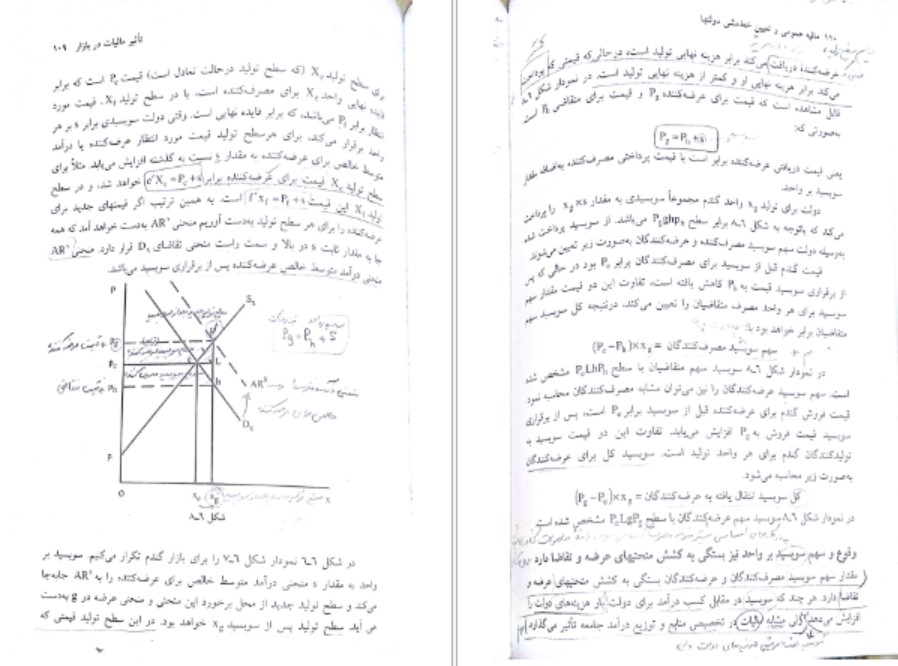 تأثیر مالیات در بازار ۱۰۹
برای سطح تولید Xe (که سطح تولید درحالت تعادل است) قیمت Pe است که برابر
فایده نهایی واحد Xe برای مصرف‌کننده است، یا در سطح تولید Xf، قیمت مورد
انتظار برابر Pf می‌باشد، که برابر فایده نهایی است. وقتی دولت سوبسیدی برابر s بر هر
واحد برقرار می‌کند، برای هرسطح تولید قیمت مورد انتظار عرضه‌کننده یا درآمد
متوسط خالص برای عرضه‌کننده به مقدار s نسبت به گذشته افزایش می‌یابد. مثلاً برای
سطح تولید Xe قیمت برای عرضه‌کننده برابر e'Xe = Pe + s خواهد شد، و در سطح
تولید Xf این قیمت f'xf = Pf + s است. به همین ترتیب اگر قیمتهای جدید برای
عرضه‌کننده را برای هر سطح تولید به‌دست آوریم منحنی ARs به‌دست خواهد آمد که همه
جا به مقدار ثابت s در بالا و سمت راست منحنی تقاضای Dh قرار دارد. منحنی ARs
منحنی درآمد متوسط خالص عرضه‌کننده پس از برقراری سوبسید می‌باشد.
P
Pg = Ph + s
Pg
Pe
Ph
L
h
ARs
P
O
xe xg x
شکل ۸ـ۶
در شکل ۶ـ۸ نمودار شکل ۷ـ۶ را برای بازار گندم تکرار می‌کنیم. سوبسید بر
واحد به مقدار s منحنی درآمد متوسط خالص برای عرضه‌کننده را به ARs جابه‌جا
می‌کند و سطح تولید جدید از محل برخورد این منحنی و منحنی عرضه در g به‌دست
می آید. سطح تولید پس از سوبسید xg خواهد بود. در این سطح تولید قیمتی که
۱۱۰ مالیه عمومی و تعیین خط‌مشی دولتها
عرضه‌کننده دریافت می‌کند برابر هزینه نهایی تولید است، درحالی‌که قیمتی که پرداخت
می‌کند برابر هزینه نهایی او و کمتر از هزینه نهایی تولید است. در نمودار شکل ۸ـ۶
قابل مشاهده است که قیمت برای عرضه‌کننده Pg و قیمت برای متقاضی Ph است
به‌صورتی که:
Pg = Ph + s
یعنی قیمت دریافتی عرضه‌کننده برابر است با قیمت پرداختی مصرف‌کننده به‌اضافه مقدار
سوبسید بر واحد.
دولت برای تولید xg واحد گندم مجموعاً سوبسیدی به مقدار xg × s را پرداخت
می‌کند که باتوجه به شکل ۸ـ۶ برابر سطح PgghPh می‌باشد. از سوبسید پرداخت شده
به‌وسیله دولت سهم سوبسید مصرف‌کننده و عرضه‌کنندگان به‌صورت زیر تعیین می‌شود.
قیمت گندم قبل از سوبسید برای مصرف‌کنندگان برابر Pe بود در حالی که پس
از برقراری سوبسید قیمت به Ph کاهش یافته است، تفاوت این دو قیمت مقدار سهم
سوبسید برای هر واحد مصرف متقاضیان را تعیین می‌کند، درنتیجه کل سوبسید سهم
متقاضیان برابر خواهد بود با:
سهم سوبسید مصرف‌کنندگان = (Pe − Ph) × xg
در نمودار شکل ۸ـ۶ سوبسید سهم متقاضیان با سطح PeLhPh مشخص شده
است. سهم سوبسید عرضه‌کنندگان را نیز می‌توان مشابه مصرف‌کنندگان محاسبه نمود
قیمت فروش گندم برای عرضه‌کننده قبل از سوبسید برابر Pe است، پس از برقراری
سوبسید قیمت فروش به Pg افزایش می‌یابد. تفاوت این دو قیمت سوبسید به
تولیدکنندگان گندم برای هر واحد تولید است. سوبسید کل برای عرضه‌کنندگان
به‌صورت زیر محاسبه می‌شود.
کل سوبسید انتقال یافته به عرضه‌کنندگان = (Pg − Pe) × xg
در نمودار شکل ۸ـ۶ سوبسید سهم عرضه‌کنندگان با سطح PeLgPg مشخص شده است
وقوع و سهم سوبسید بر واحد نیز بستگی به کشش منحنیهای عرضه و تقاضا دارد
مقدار سهم سوبسید مصرف‌کنندگان و عرضه‌کنندگان بستگی به کشش منحنیهای عرضه و
تقاضا دارد. هر چند که سوبسید در مقابل کسب درآمد برای دولت بار هزینه‌های دولت را
افزایش می‌دهد ولی مشابه مالیات در تخصیص منابع و توزیع درآمد جامعه تأثیر می‌گذارد.